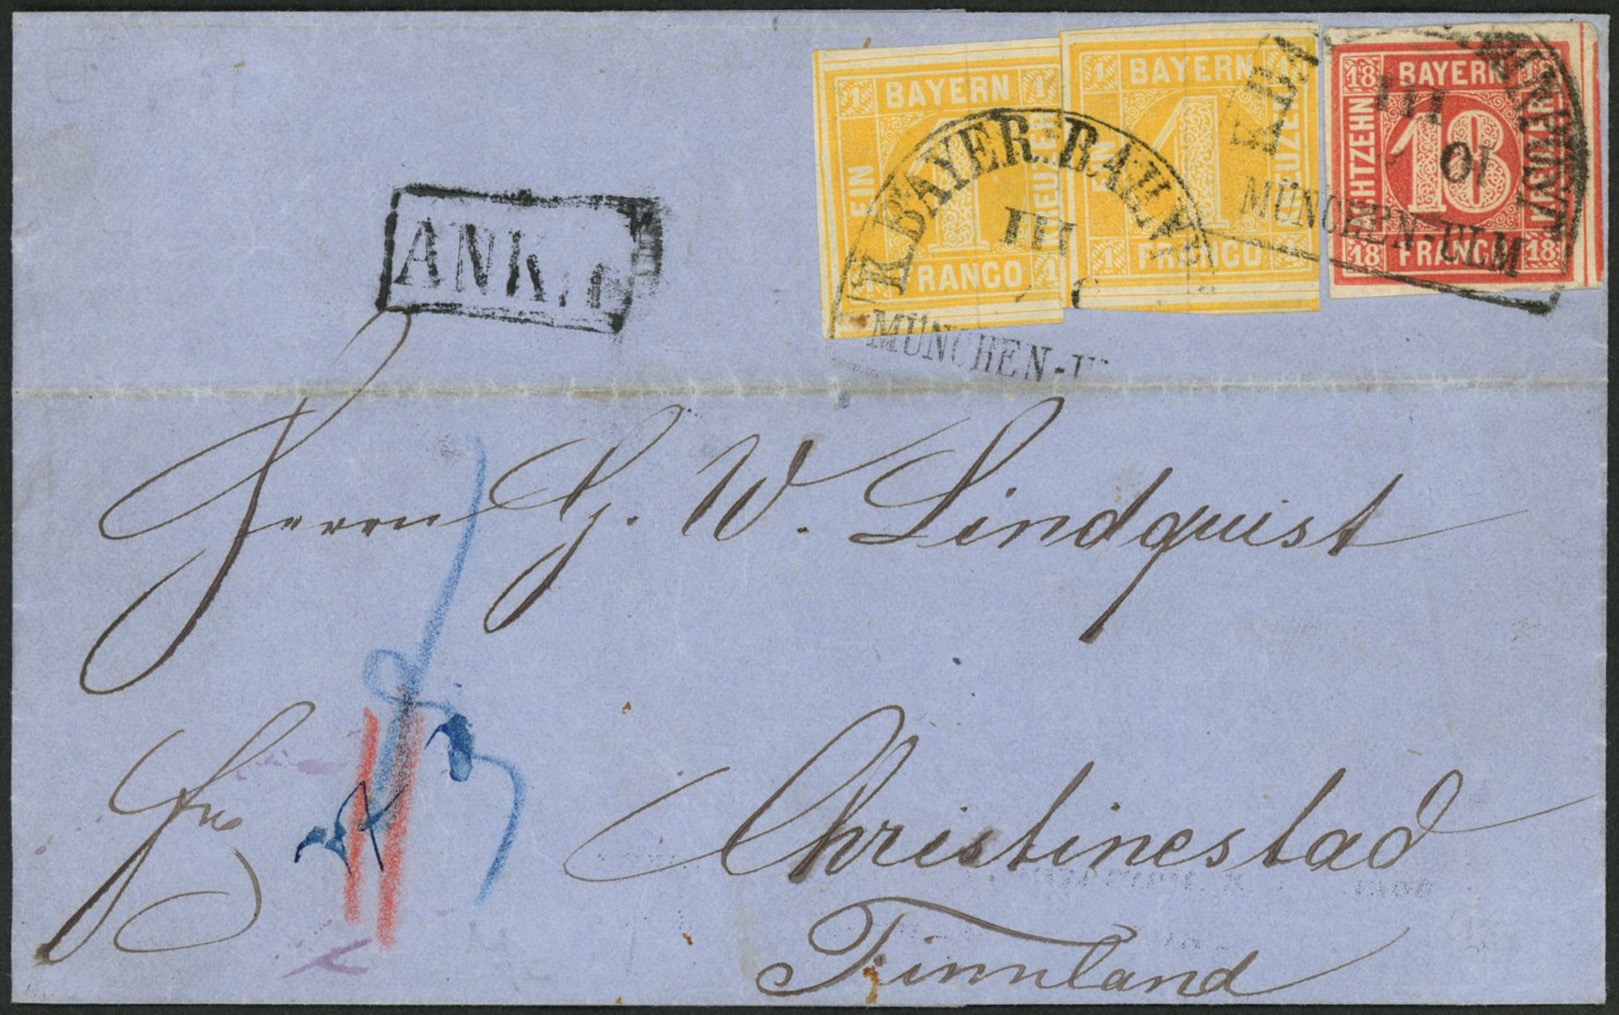 1 BAYERN 1
EIN
NEUZER
1 FRANCO 1
1 BAYERN 1
EIN
NEUZER
1 FRANCO 1
18 BAYERN 18
ACHTZEHN
18
NEUZER
18 FRANCO 18
K. BAYER. BAHN
III
MÜNCHEN-U
K. BA
III
01
MÜNCHEN-ULM
ANK.
Herrn G. W. Lindquist
Christinestad
Finnland